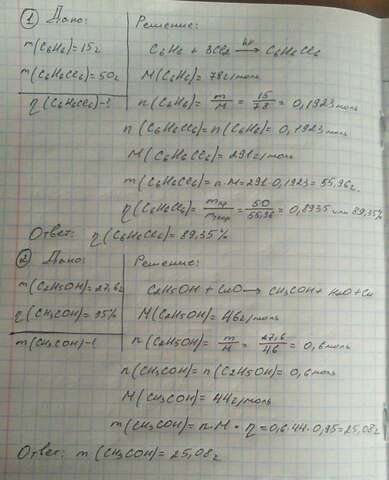 ① Дано:
m(C6H6)=15г
m(C6H6Cl6)=50г
η(C6H6Cl6)-?
Решение:
C6H6 + 3Cl2 –hν→ C6H6Cl6
M(C6H6)=78г/моль
n(C6H6)= m/M = 15/78 = 0,1923моль
n(C6H6Cl6)=n(C6H6)=0,1923моль
M(C6H6Cl6)=291г/моль
m(C6H6Cl6)=n·M=291·0,1923=55,96г.
η(C6H6Cl6)= mпр/mтеор = 50/55,96 = 0,8935 или 89,35%
Ответ: η(C6H6Cl6)=89,35%
② Дано:
m(C2H5OH)=27,6г
η(CH3COH)=95%
m(CH3COH)-?
Решение:
C2H5OH + CuO → CH3COH + H2O + Cu
M(C2H5OH)=46г/моль
n(C2H5OH)= m/M = 27,6/46 = 0,6моль
n(CH3COH)=n(C2H5OH)=0,6моль
M(CH3COH)=44г/моль
m(CH3COH)=n·M·η=0,6·44·0,95=25,08г
Ответ: m(CH3COH)=25,08г